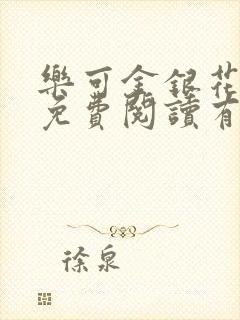 樂可金銀花
免費閱讀有
徐泉